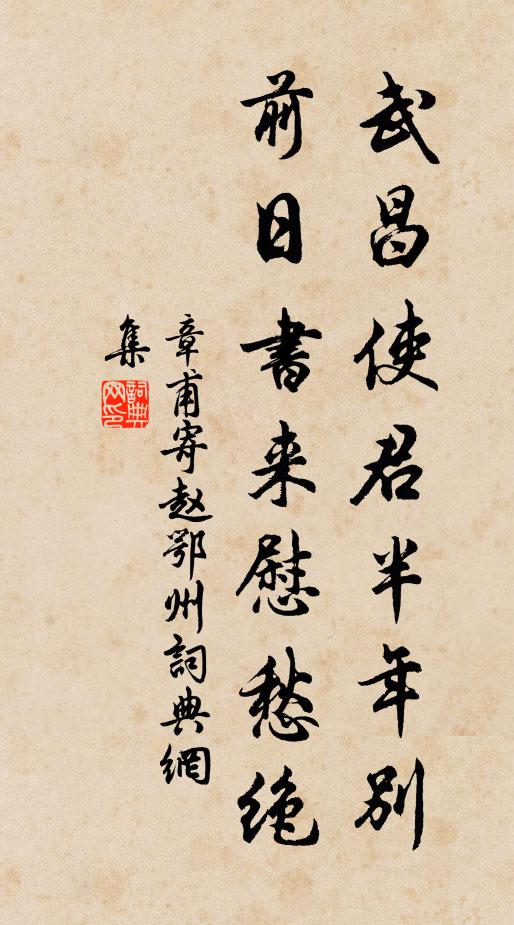 武昌使君半年别
前日書来慰愁绝
章甫寄赵鄂州詞典網
集
詞典網印